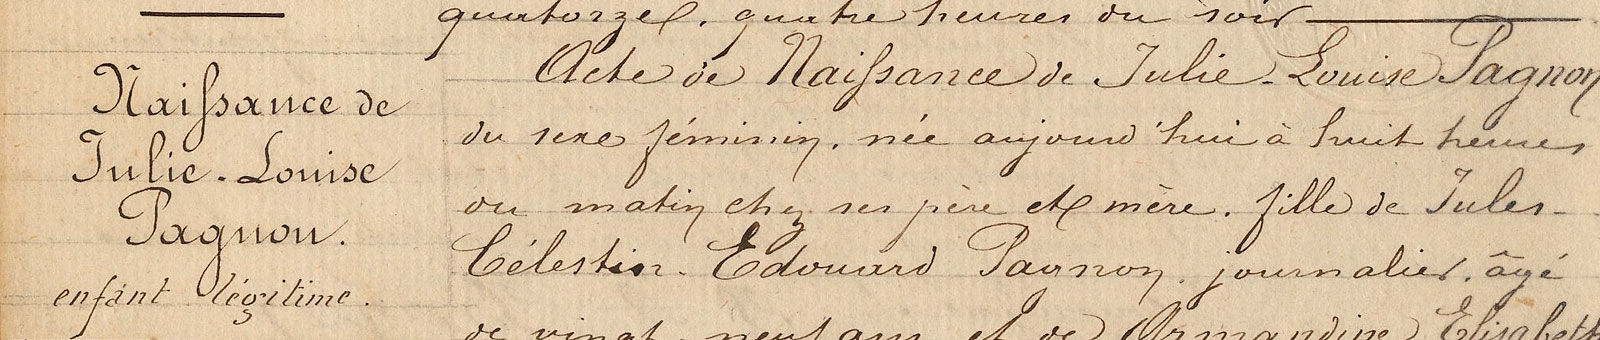 quatorze, quatre heures du soir
Naissance de
Julie-Louise
Pagnon.
enfant légitime.
Acte de Naissance de Julie-Louise Pagnon
du sexe féminin, née aujourd'hui à huit heures
du matin chez ses père et mère, fille de Jules-
Célestin-Edouard Pagnon, journalier, âgé
de vingt-neuf ans et de Armandine Elisabeth